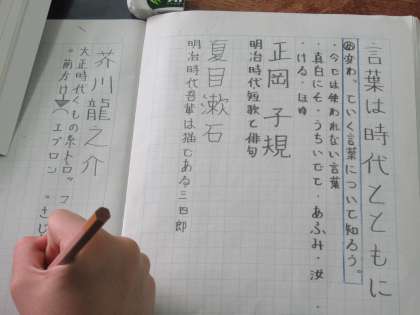 言葉は時代とともに
変わっていく言葉について知ろう。
・今では使われない言葉
・真白にそ・うちいでて・あふみ・汝・
ける・
正岡子規
明治時代短歌と俳句
夏目漱石
明治時代吾輩は猫である三四郎
芥川龍之介
大正時代くもの糸トロッ
・前カケ
エプロン